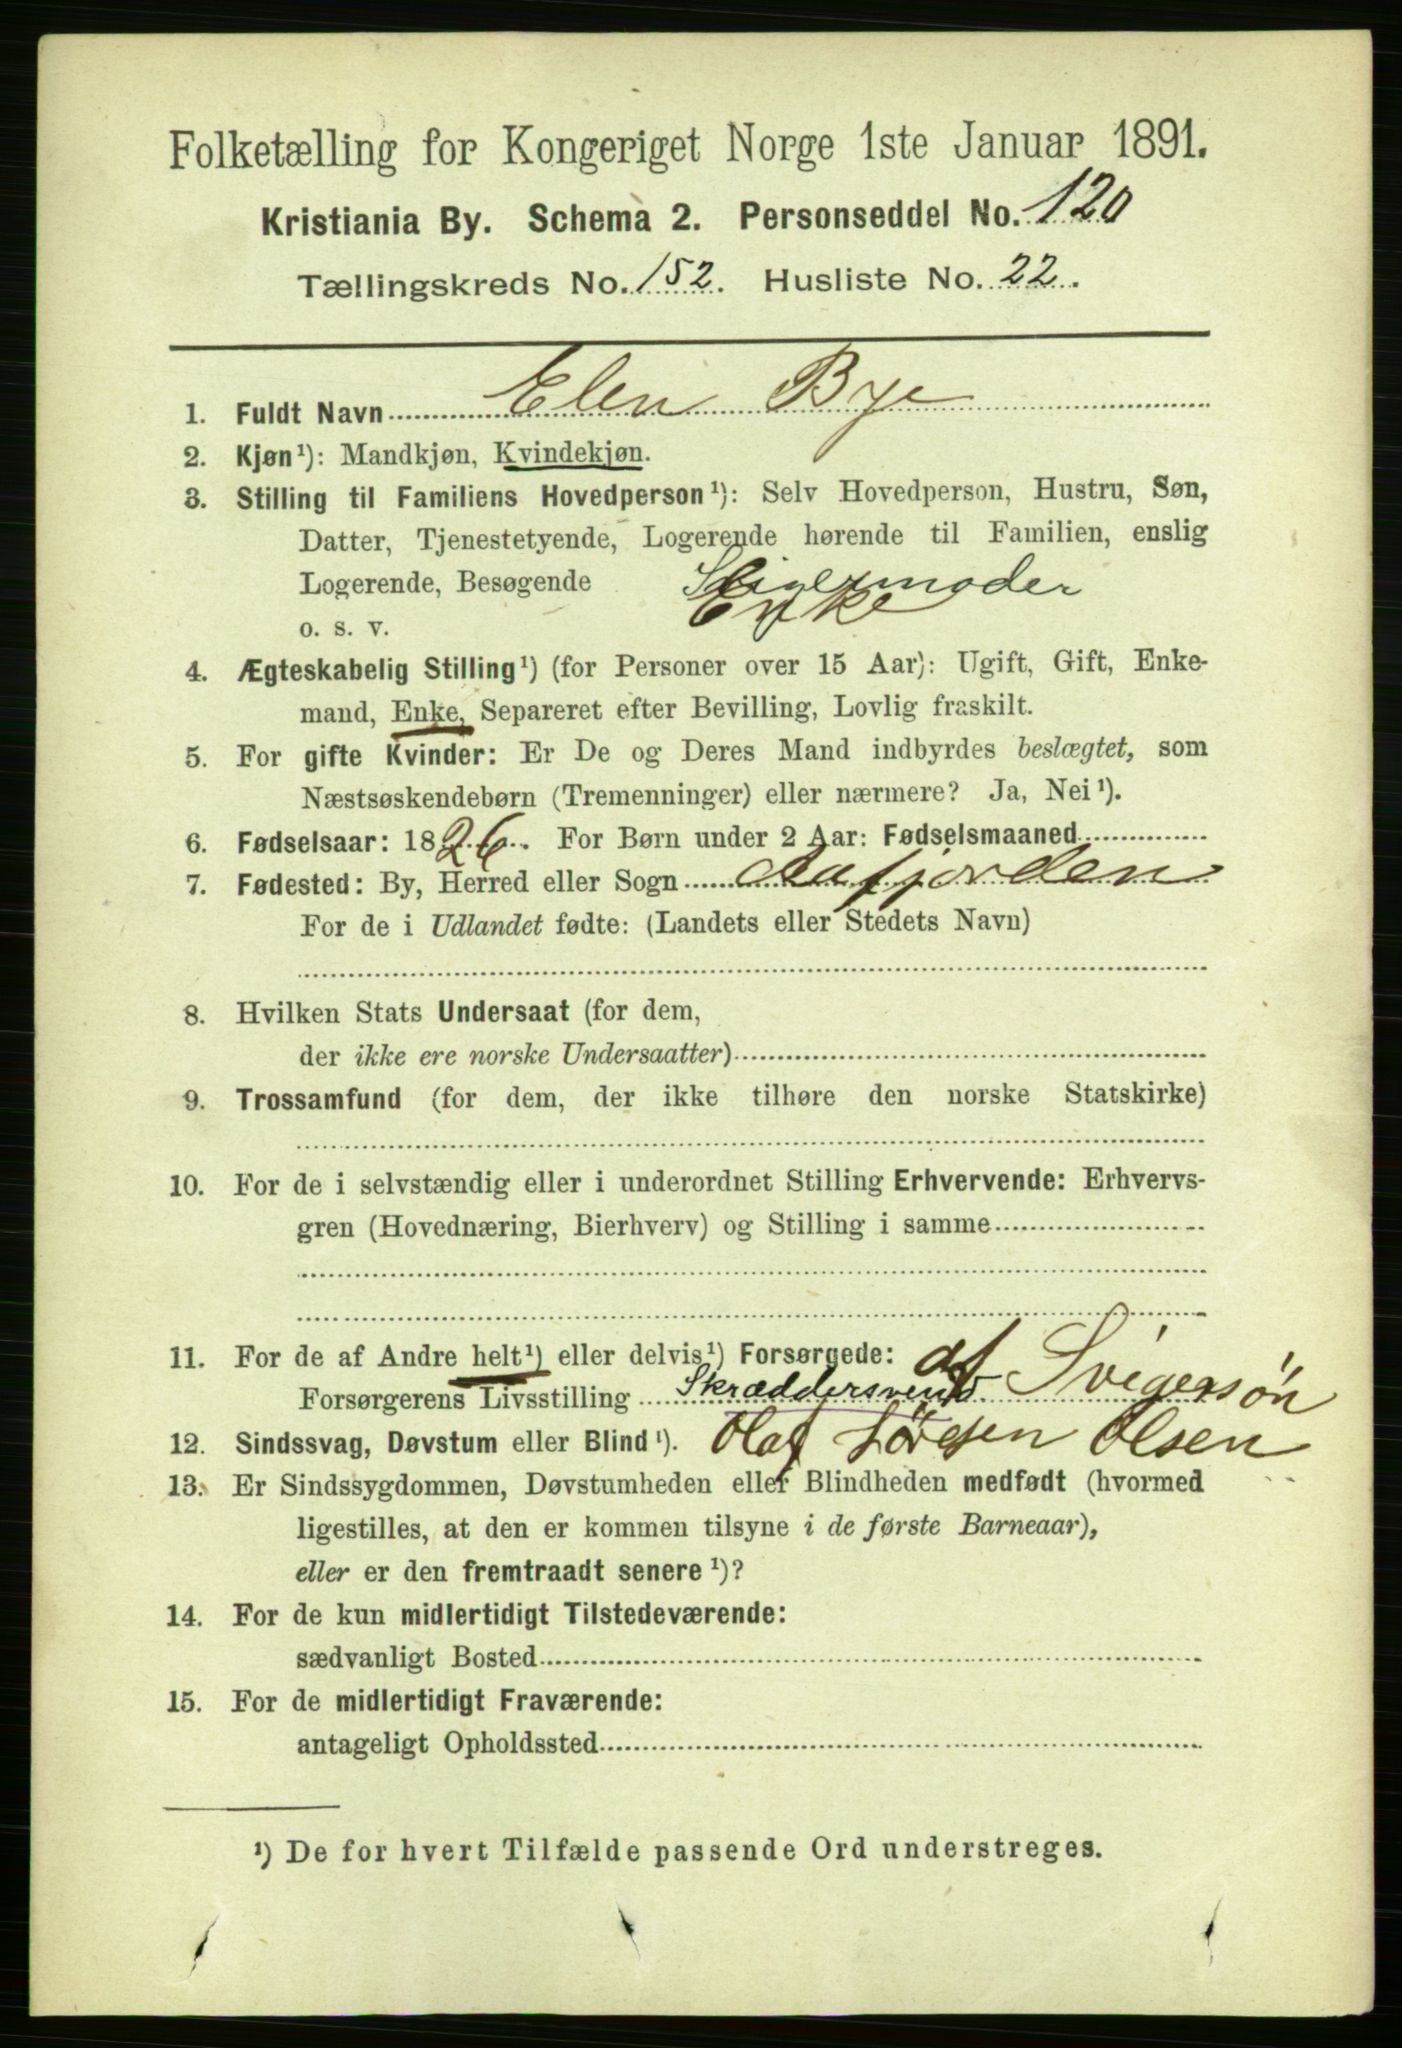 Folketælling for Kongeriget Norge 1ste Januar 1891.
Kristiania By. Schema 2. Personseddel No. 120
Tællingskreds No. 152. Husliste No. 22.
1. Fuldt Navn Elen Bye
2. Kjøn¹): Mandkjøn, Kvindekjøn.
3. Stilling til Familiens Hovedperson¹): Selv Hovedperson, Hustru, Søn,
Datter, Tjenestetyende, Logerende hørende til Familien, enslig
Logerende, Besøgende Svigermoder
o. s. v. Enke
4. Ægteskabelig Stilling¹) (for Personer over 15 Aar): Ugift, Gift, Enke-
mand, Enke, Separeret efter Bevilling, Lovlig fraskilt.
5. For gifte Kvinder: Er De og Deres Mand indbyrdes beslægtet, som
Næstsøskendebørn (Tremenninger) eller nærmere? Ja, Nei¹).
6. Fødselsaar: 1826. For Børn under 2 Aar: Fødselsmaaned
7. Fødested: By, Herred eller Sogn Aafjorden
For de i Udlandet fødte: (Landets eller Stedets Navn)
8. Hvilken Stats Undersaat (for dem,
der ikke ere norske Undersaatter)
9. Trossamfund (for dem, der ikke tilhøre den norske Statskirke)
10. For de i selvstændig eller i underordnet Stilling Erhvervende: Erhvervs-
gren (Hovednæring, Bierhverv) og Stilling i samme
11. For de af Andre helt¹) eller delvis¹) Forsørgede: af Svigersøn
Forsørgerens Livsstilling Skræddersvend
12. Sindssvag, Døvstum eller Blind¹). Olaf Olsen
13. Er Sindssygdommen, Døvstumheden eller Blindheden medfødt (hvormed
ligestilles, at den er kommen tilsyne i de første Barneaar),
eller er den fremtraadt senere¹)?
14. For de kun midlertidigt Tilstedeværende:
sædvanligt Bosted
15. For de midlertidigt Fraværende:
antageligt Opholdssted
¹) De for hvert Tilfælde passende Ord understreges.